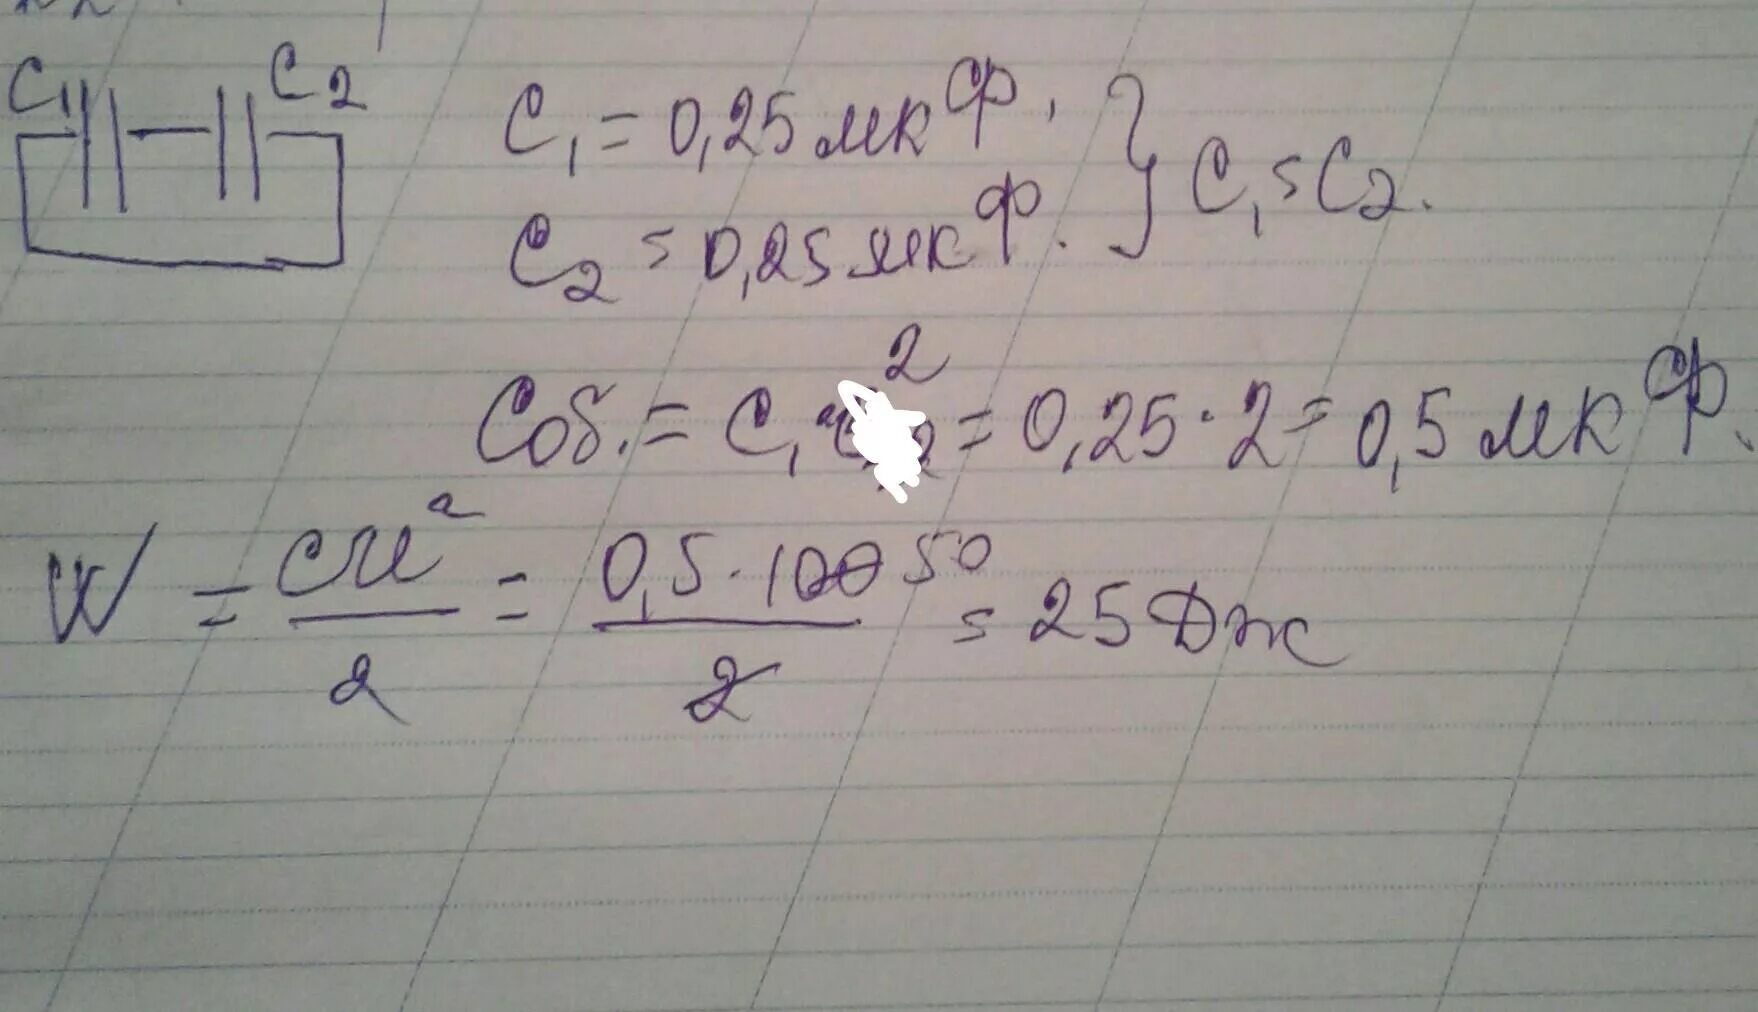 C₁ C₂
C₁ = 0,25 мкФ.
C₂ = 0,25 мкФ. } C₁ = C₂.
Cоб. = C₁ · 2 = 0,25 · 2 = 0,5 мкФ.
W = cu²/2 = 0,5 · 100 50/2 = 25 Дж